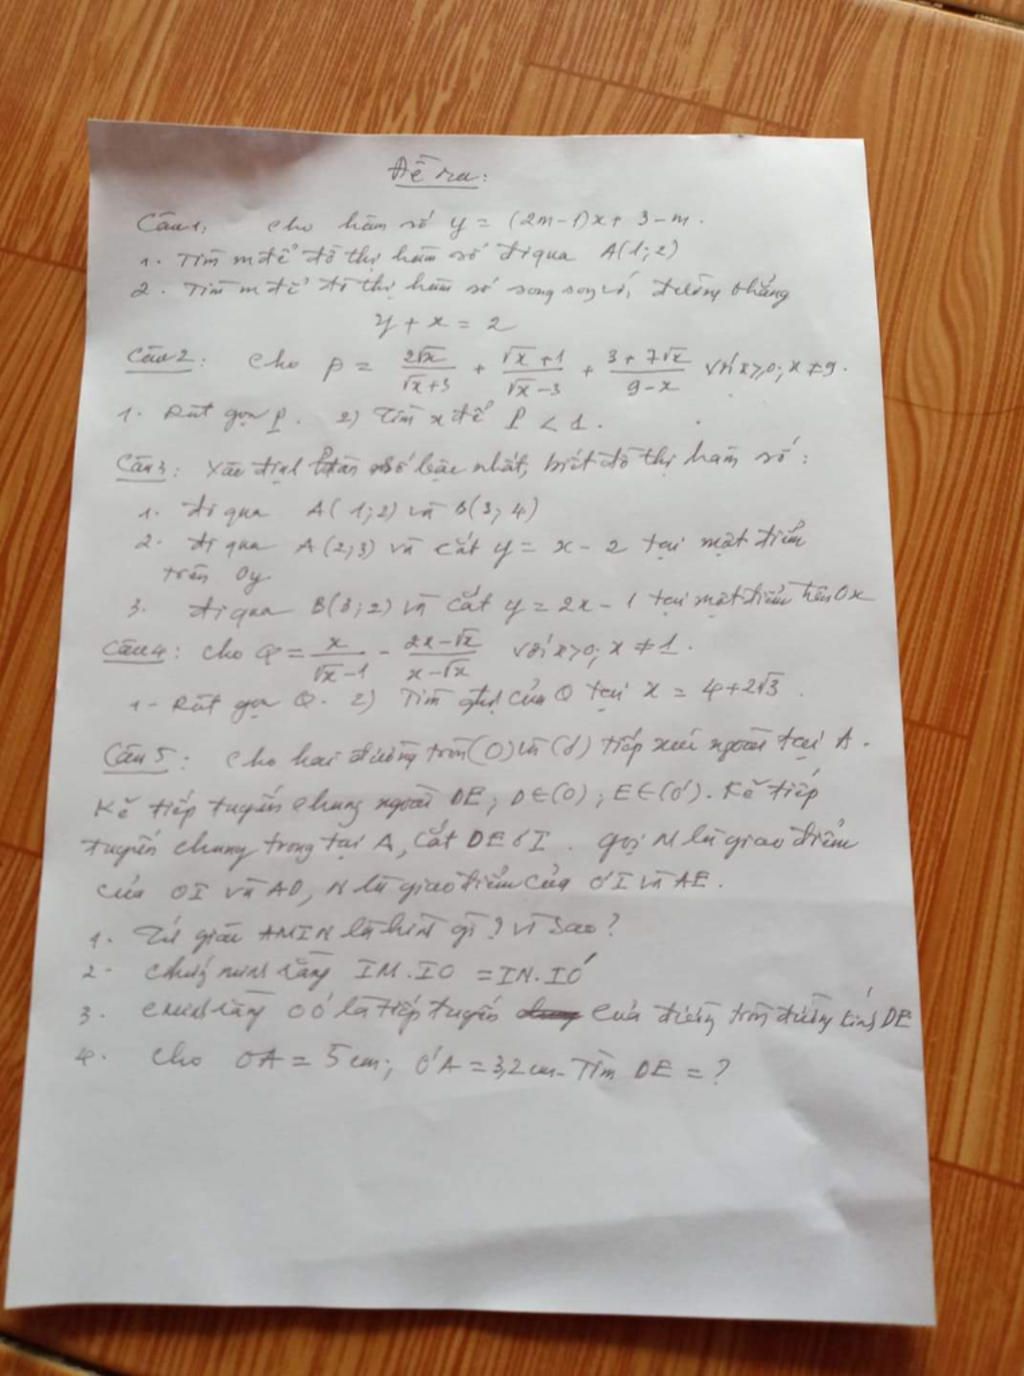 Đề ra:
Câu 1, Cho hàm số y = (2m-1)x + 3-m.
1. Tìm m để đồ thị hàm số đi qua A(1;2)
2. Tìm m để đồ thị hàm số song song với đường thẳng
y + x = 2
Câu 2: Cho P = 2√x/(√x+3) + (√x+1)/(√x-3) + (3+7√x)/(9-x) với x≥0; x≠9.
1. Rút gọn P. 2) Tìm x để P < 1.
Câu 3: Xác định hàm số bậc nhất, biết đồ thị hàm số:
1. đi qua A(1;2) và B(3;4)
2. đi qua A(2;3) và cắt y = x-2 tại một điểm
trên Oy
3. đi qua B(3;2) và cắt y = 2x-1 tại một điểm trên Ox
Câu 4: Cho Q = x/(√x-1) - (2x-√x)/(x-√x) với x>0; x≠1.
1- Rút gọn Q. 2) Tìm gtrị của Q tại x = 4+2√3.
Câu 5: Cho hai đường tròn (O) và (O') tiếp xúc ngoài tại A.
Kẻ tiếp tuyến chung ngoài DE, D∈(O); E∈(O'). Kẻ tiếp
tuyến chung trong tại A, cắt DE ở I. gọi M là giao điểm
của OI và AD, N là giao điểm của O'I và AE.
1. Tứ giác AMIN là hình gì? Vì sao?
2- Chứng minh rằng IM.IO = IN.IO'
3. cminh rằng OO' là tiếp tuyến của đường tròn đường kính DE
4. Cho OA = 5cm; O'A = 3,2cm. Tìm DE = ?